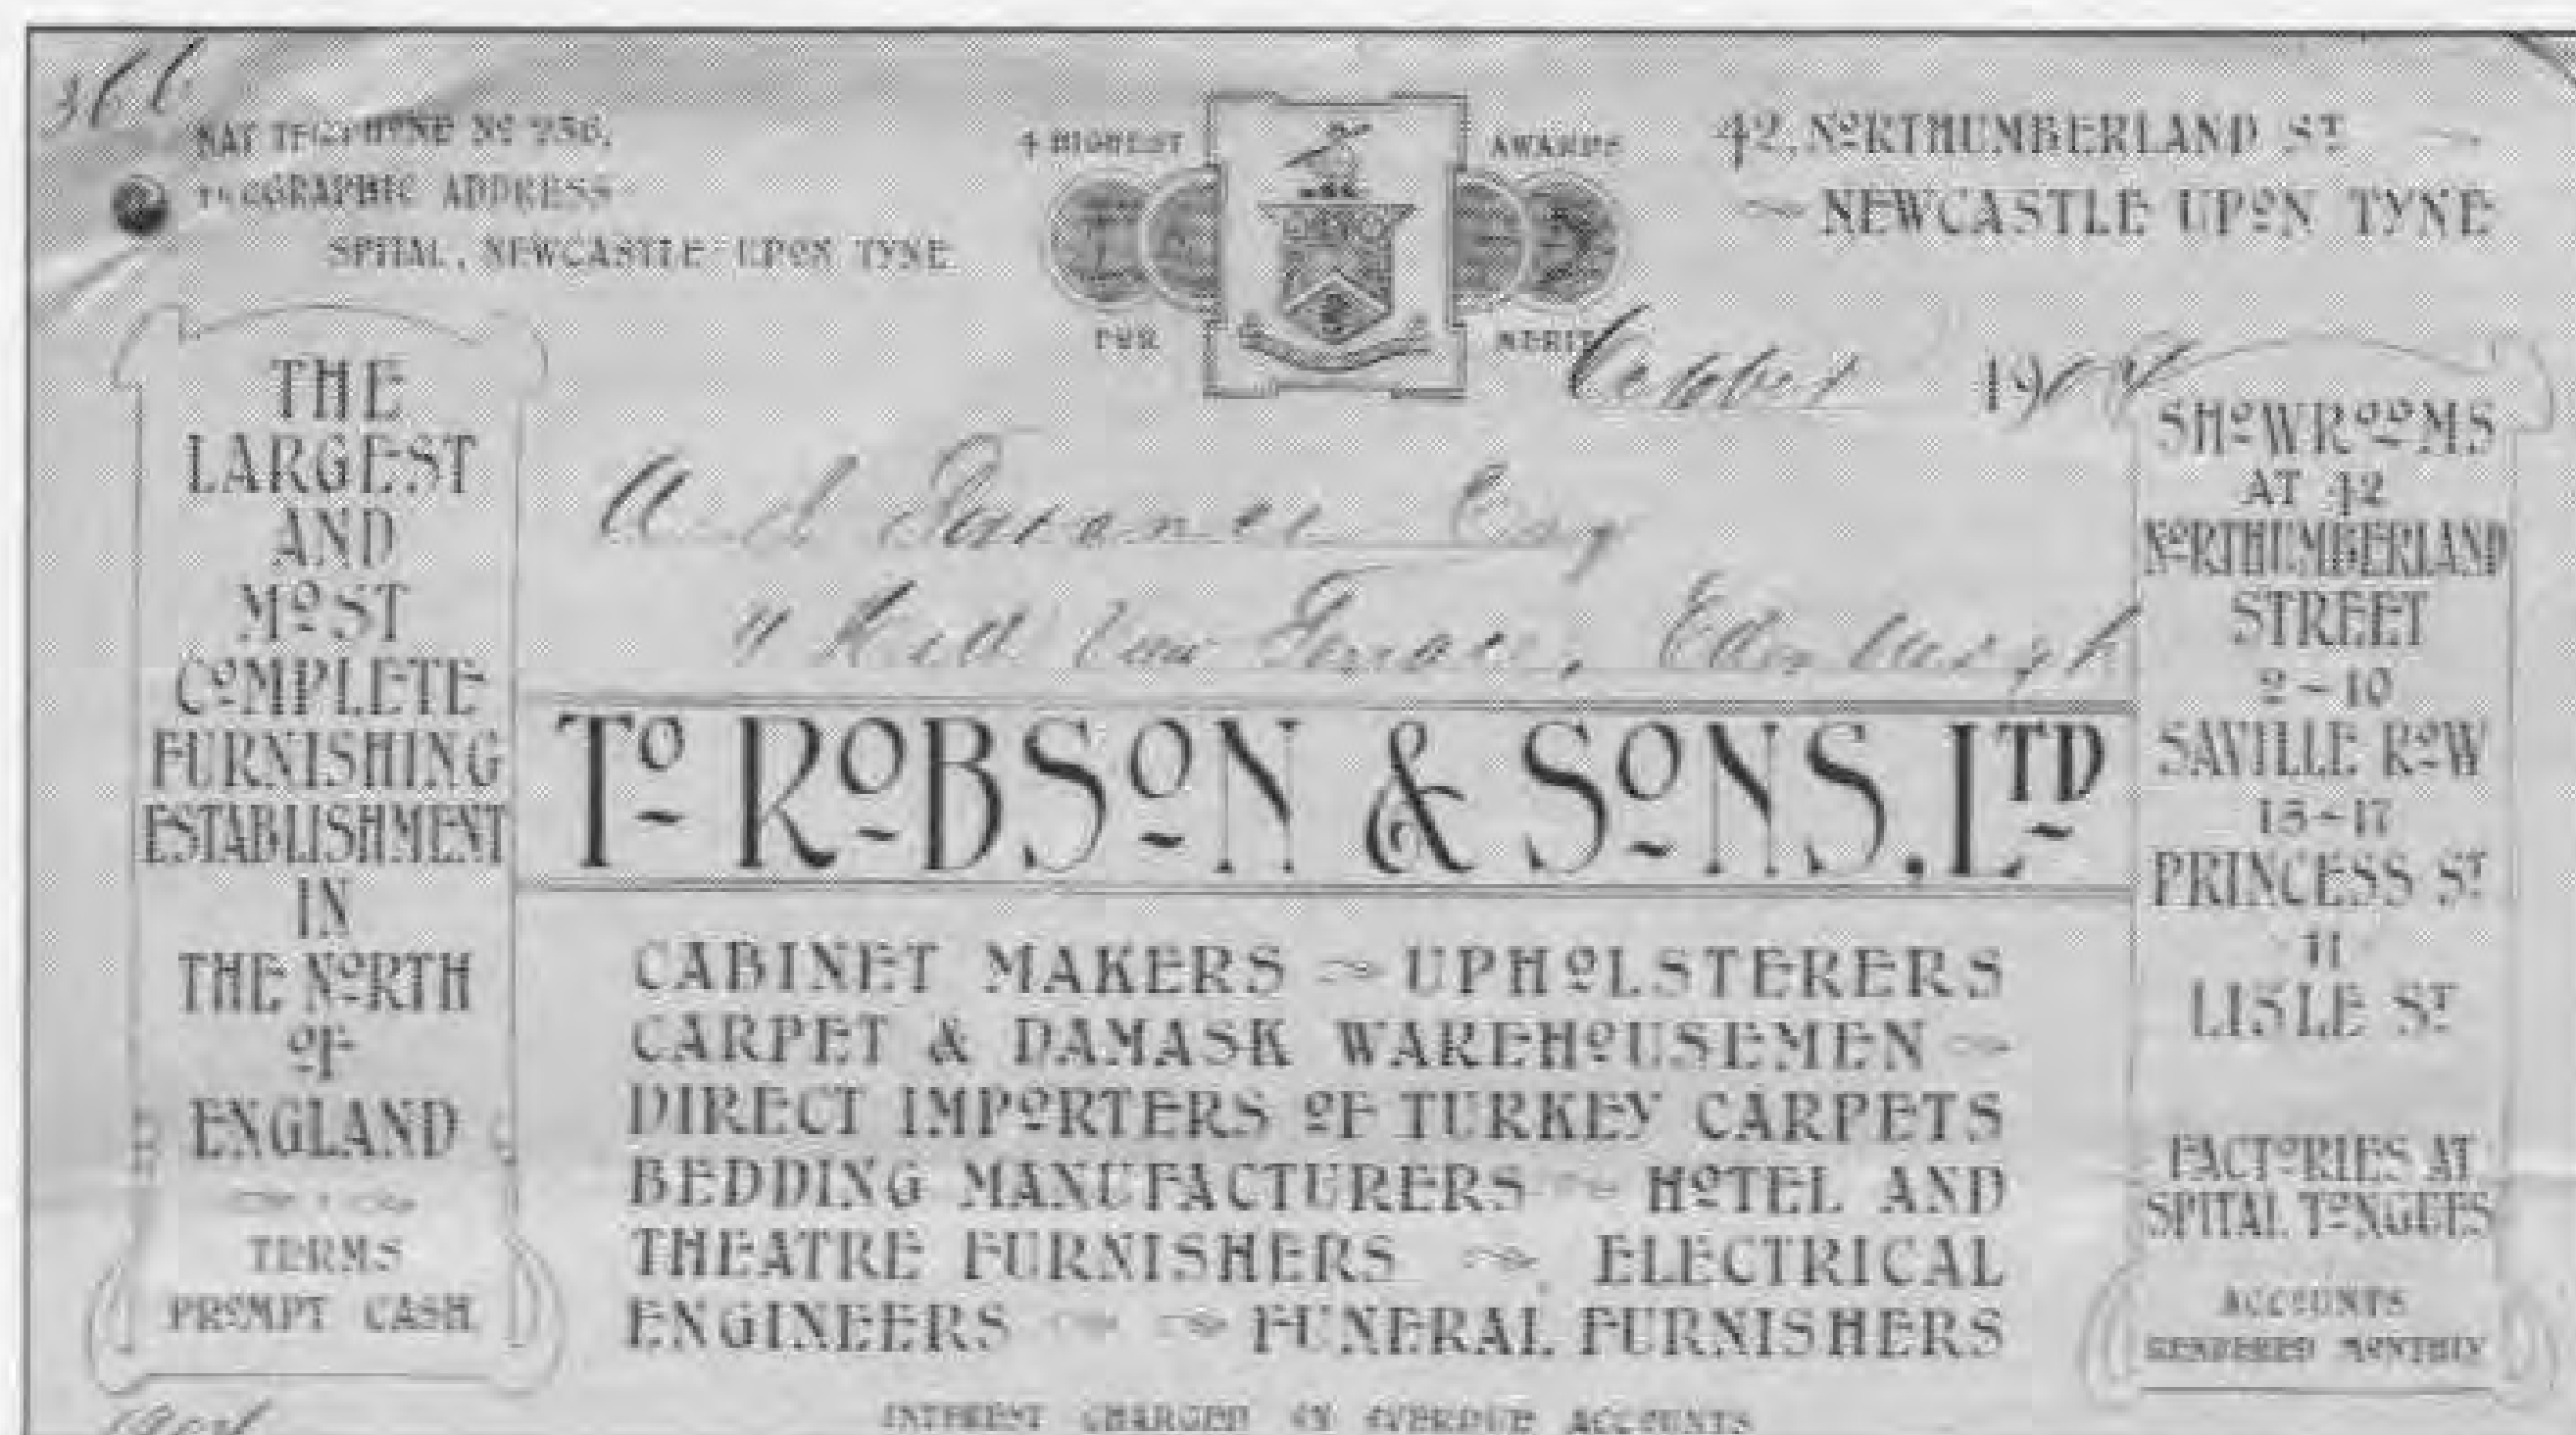 NAT TELEPHONE Nº 256.
TELEGRAPHIC ADDRESS
SPITAL, NEWCASTLE-UPON TYNE
4 HIGHEST AWARDS
FOR MERIT
42, NORTHUMBERLAND ST
NEWCASTLE UPON TYNE
190
Esq
Terrace, Edinburgh
THE
LARGEST
AND
MOST
COMPLETE
FURNISHING
ESTABLISHMENT
IN
THE NORTH
OF
ENGLAND
TERMS
PROMPT CASH
TO ROBSON & SONS, LTD
CABINET MAKERS ~ UPHOLSTERERS
CARPET & DAMASK WAREHOUSEMEN ~
DIRECT IMPORTERS OF TURKEY CARPETS
BEDDING MANUFACTURERS ~ HOTEL AND
THEATRE FURNISHERS ~ ELECTRICAL
ENGINEERS ~ ~ FUNERAL FURNISHERS
INTEREST CHARGED ON OVERDUE ACCOUNTS
SHOWROOMS
AT 42
NORTHUMBERLAND
STREET
2~10
SAVILLE ROW
15~17
PRINCESS ST
11
LISLE ST
FACTORIES AT
SPITAL TONGUES
ACCOUNTS
RENDERED MONTHLY